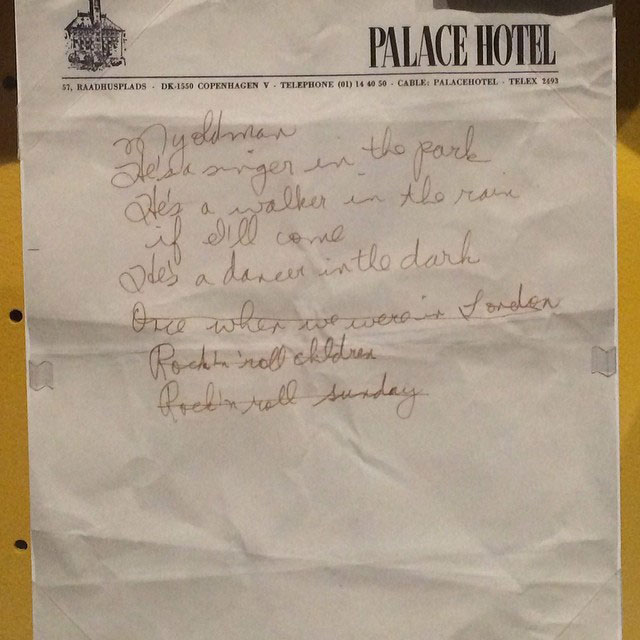 PALACE HOTEL
57, RAADHUSPLADS - DK-1550 COPENHAGEN V - TELEPHONE (01) 14 40 50 - CABLE: PALACEHOTEL - TELEX 2693
My old man
He's a singer in the park
He's a walker in the rain
if I'll come
He's a dancer in the dark
Once when we were in London
Rock'n'roll children
Rock'n roll sunday